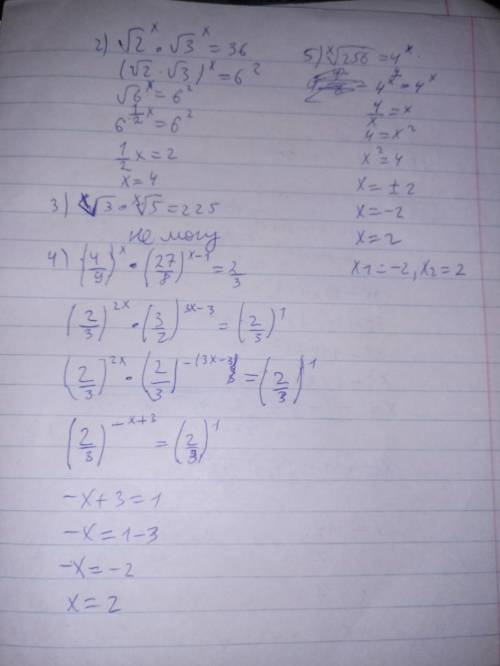 2) √2^x · √3^x = 36
(√2 · √3)^x = 6^2
√6^x = 6^2
6^(1/2 x) = 6^2
1/2 x = 2
x = 4
3) ˣ√3 · ˣ√5 = 225
не могу
4) (4/9)^x · (27/8)^(x-1) = 2/3
(2/3)^(2x) · (3/2)^(3x-3) = (2/3)^1
(2/3)^(2x) · (2/3)^(-(3x-3)) = (2/3)^1
(2/3)^(-x+3) = (2/3)^1
-x+3 = 1
-x = 1-3
-x = -2
x = 2
5) ˣ√256 = 4^x
4^(4/x) = 4^x
4/x = x
4 = x^2
x^2 = 4
x = ±2
x = -2
x = 2
x1 = -2, x2 = 2